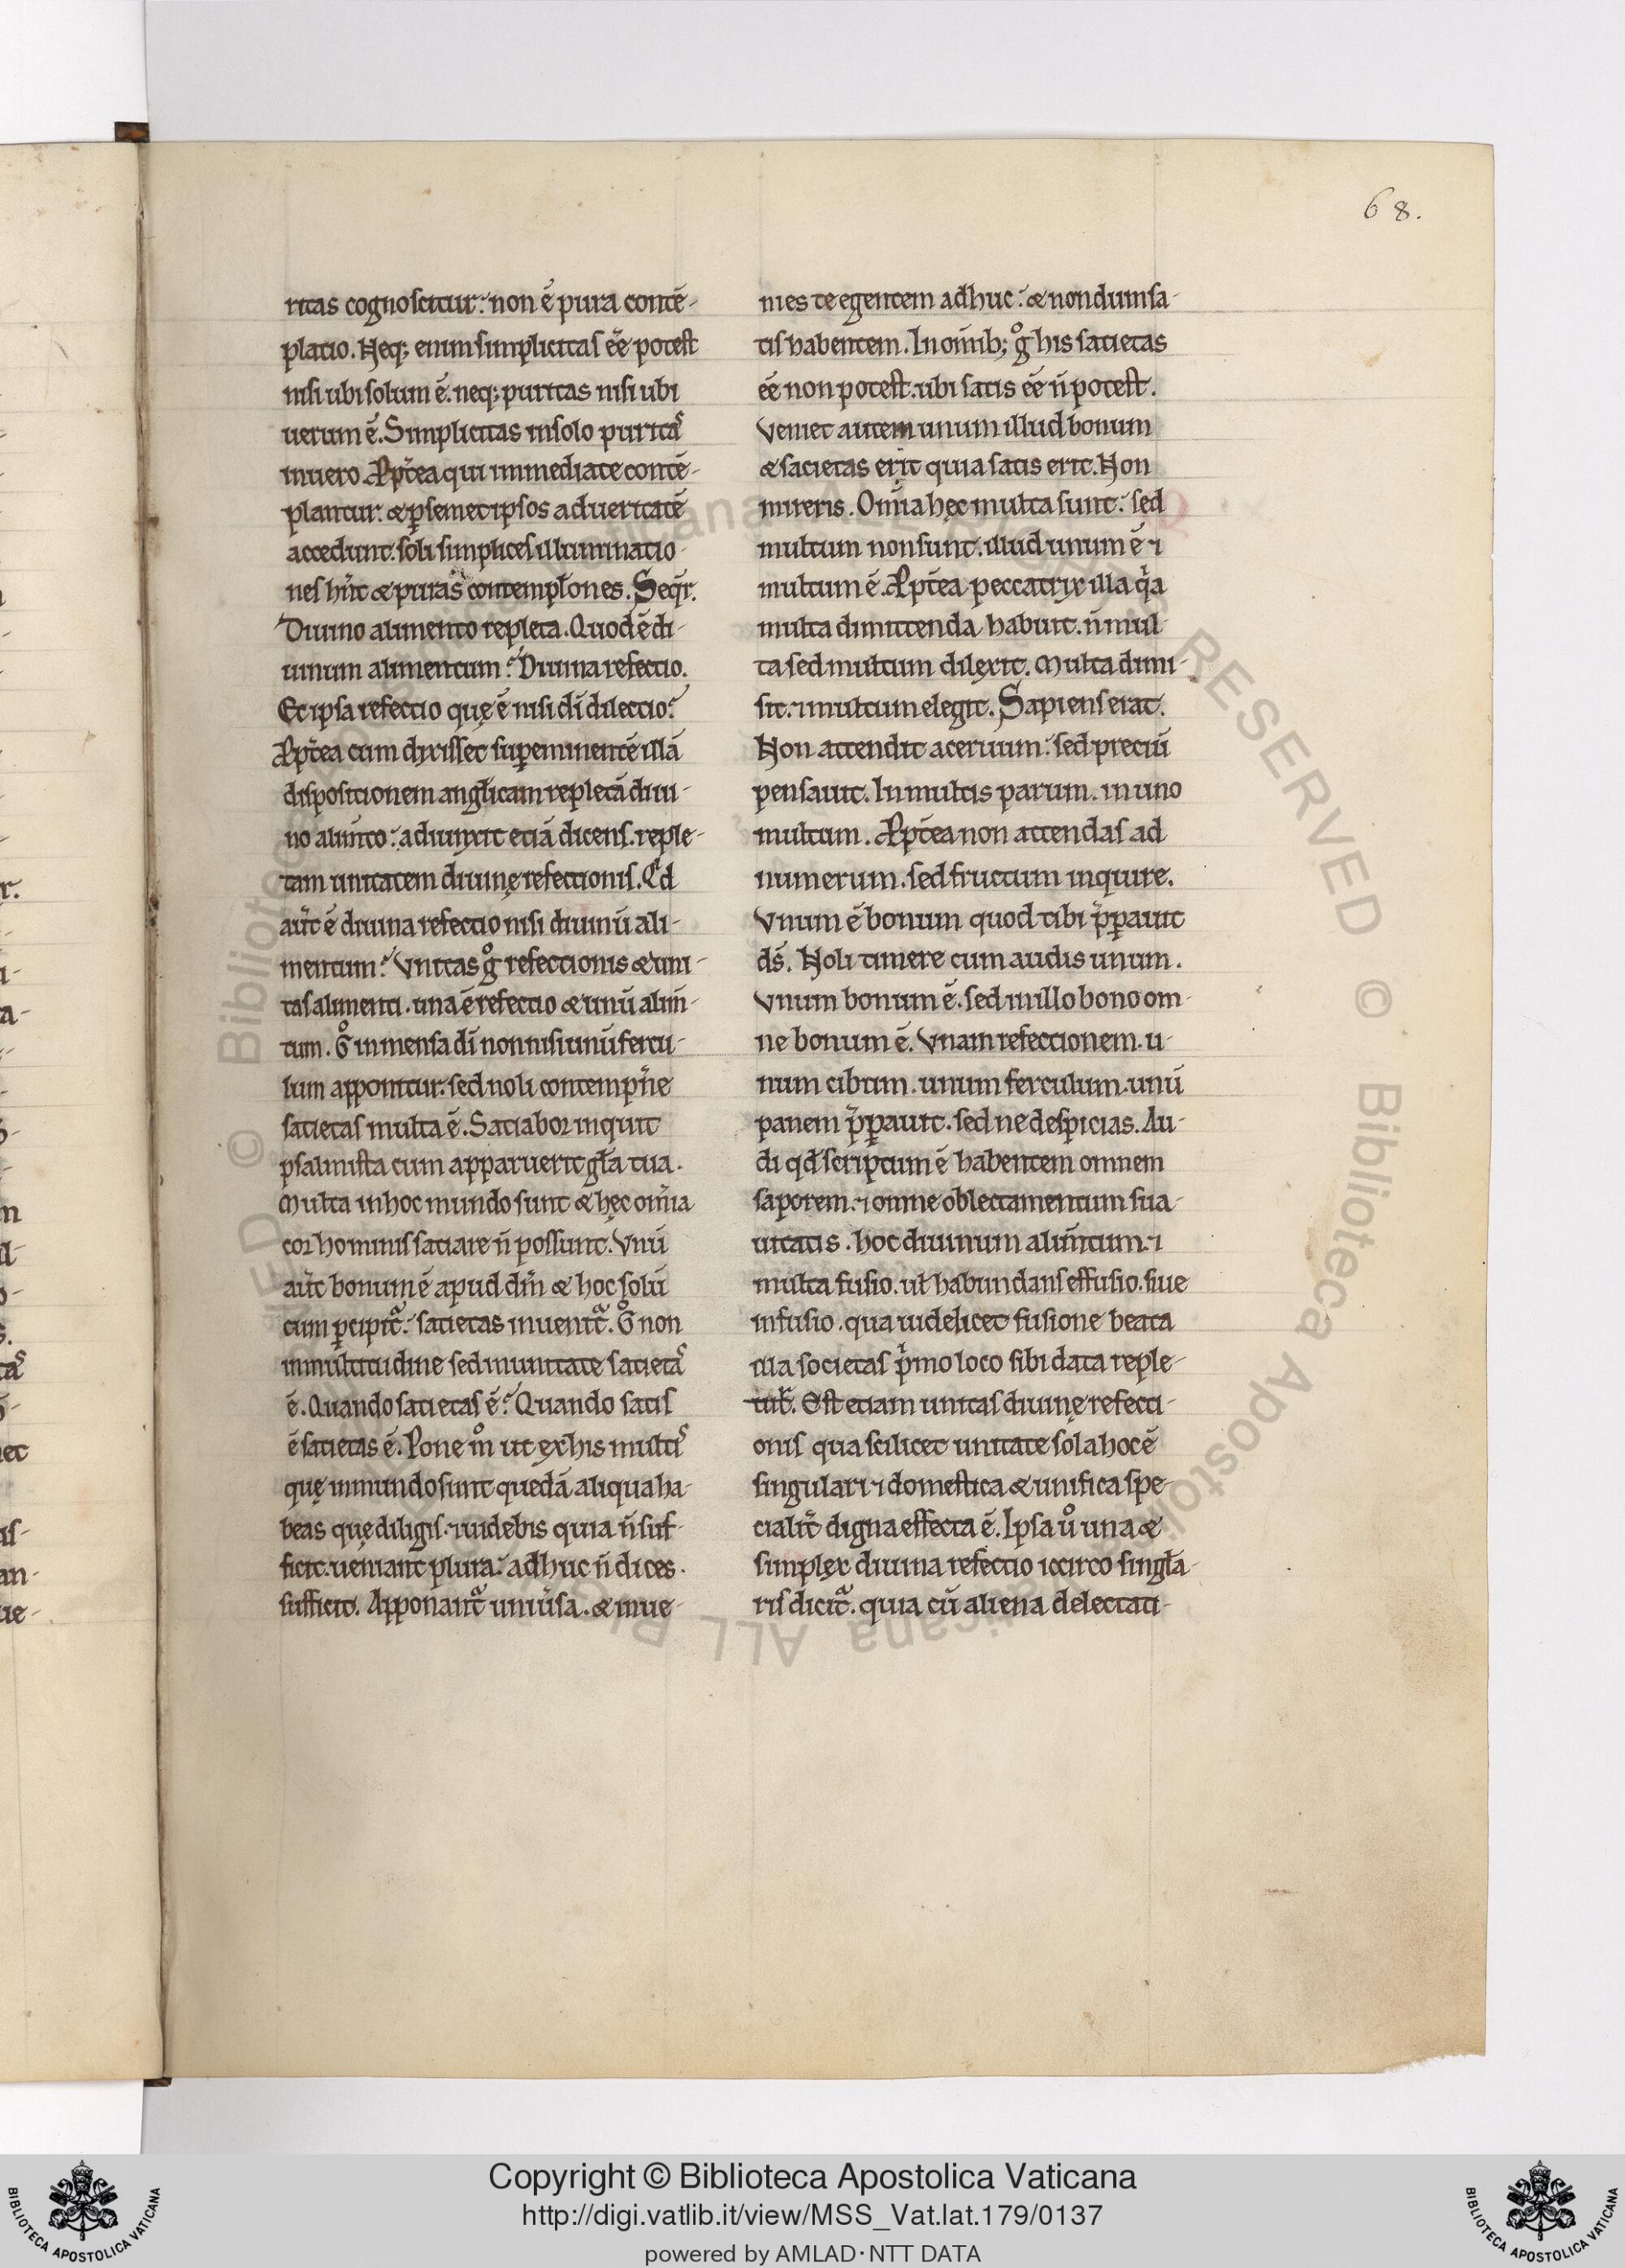 68.
ritas cognoscitur: non ē pura contē-
platio. Neq; enim simplicitas ēe potest
nisi ubi solum ē. neq; puritas nisi ubi
uerum ē. Simplicitas in solo puritas
in uero. Ppt̄ea qui immediate contē-
plantur. & ꝑ semet ipsos ad ueritatē
accedunt. soli simplices illuminatio-
nes hn̄t & puras contempl̄ones. Seqr̄.
Diuino alimento repleta. Quod ē di-
uinum alimentum? Diuina refectio.
Et ipsa refectio quę ē nisi dī dilectio?
Ppt̄ea cum dixisset suꝑeminentē illā
dispositionem angl̄icam repletā diui-
no alim̄to: adiunxit etiā dicens. reple-
tam unitatem diuinę refectionis. Qd
aut̄ ē diuina refectio nisi diuinū ali-
mentum? Vnitas gͦ refectionis & uni-
tas alimenti. una ē refectio & unū alim̄-
tum. Gͦ in mensa dī non nisi unū fercu-
lum apponitur. sed noli contempn̄e
satietas multa ē. Satiabor inquit
psalmista cum apparuerit gl̄a tua.
Multa in hoc mundo sunt & hęc om̄ia
cor hominis satiare n̄ possunt. Vnū
aut̄ bonum ē apud dm̄ & hoc solū
cum ꝑcipit᷑: satietas inuenit᷑. Gͦ non
in multitudine sed in unitate satietas
ē. Quando satietas ē? Quando satis
ē satietas ē. Pone mͦ ut ex his multis
quę in mundo sunt quedā aliqua ha-
beas quę diligis. ⁊ uidebis quia n̄ suf-
ficit. ueniant plura: adhuc n̄ dices.
sufficit. Apponant᷑ uniu̓sa. & inue-
nies te egentem adhuc: & nondum sa-
tis habentem. In om̄ib; gͦ his satietas
ēe non potest. ubi satis ēe n̄ potest.
Veniet autem unum illud bonum
& satietas erit quia satis erit. Non
mireris. Om̄ia hęc multa sunt: sed
multum non sunt. illud unum ē ⁊
multum ē. Ppt̄ea peccatrix illa q̓a
multa dimittenda habuit. n̄ mul-
ta sed multum dilexit. Multa dimi-
sit. ⁊ multum elegit. Sapiens erat.
Non attendit aceruum: sed preciū
pensauit. In multis parum. in uno
multum. Ppt̄ea non attendas ad
numerum. sed fructum inquire.
Vnum ē bonum quod tibi p̄ꝑauit
ds̄. Noli timere cum audis unum.
Vnum bonum ē. sed in illo bono om-
ne bonum ē. Vnam refectionem. u-
num cibum. unum ferculum. unū
panem p̄ꝑauit. sed ne despicias. Au-
di qd̄ scriptum ē habentem omnem
saporem. ⁊ omne oblectamentum sua-
uitatis. hoc diuinum alim̄tum. ⁊
multa fusio. ul̄ habundans effusio. siue
infusio. qua uidelicet fusione beata
illa societas p̓mo loco sibi data reple-
tur. Est etiam unitas diuinę refecti-
onis qua scilicet unitate sola hoc ē
singulari ⁊ domestica & unifica spe-
cialit̄ digna effecta ē. Ipsa uͦ una &
simplex diuina refectio iccirco singl̄a-
ris dicit᷑. quia cū aliena delectati-
Copyright © Biblioteca Apostolica Vaticana
http://digi.vatlib.it/view/MSS_Vat.lat.179/0137
powered by AMLAD·NTT DATA